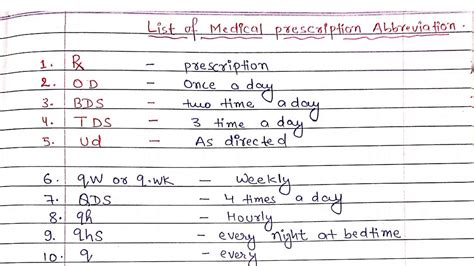 List of Medical prescription Abbreviation
1. ℞ – prescription
2. OD – Once a day
3. BDS – two time a day
4. TDS – 3 time a day
5. Ud – As directed
6. qW or q.wk – Weekly
7. QDS – 4 times a day
8. qh – Hourly
9. qhS – every night at bedtime
10. q – every